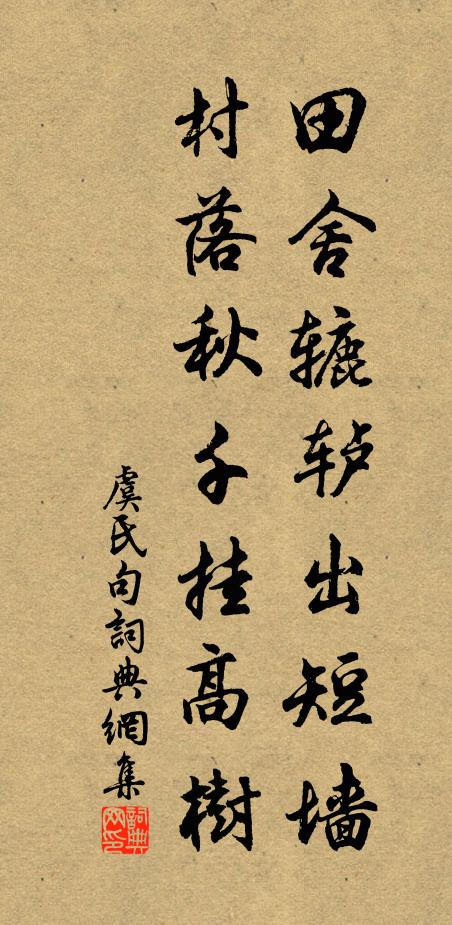 田舍辘轳出短墙
村落秋千挂高樹
虞氏句詞典網集
詞典网印